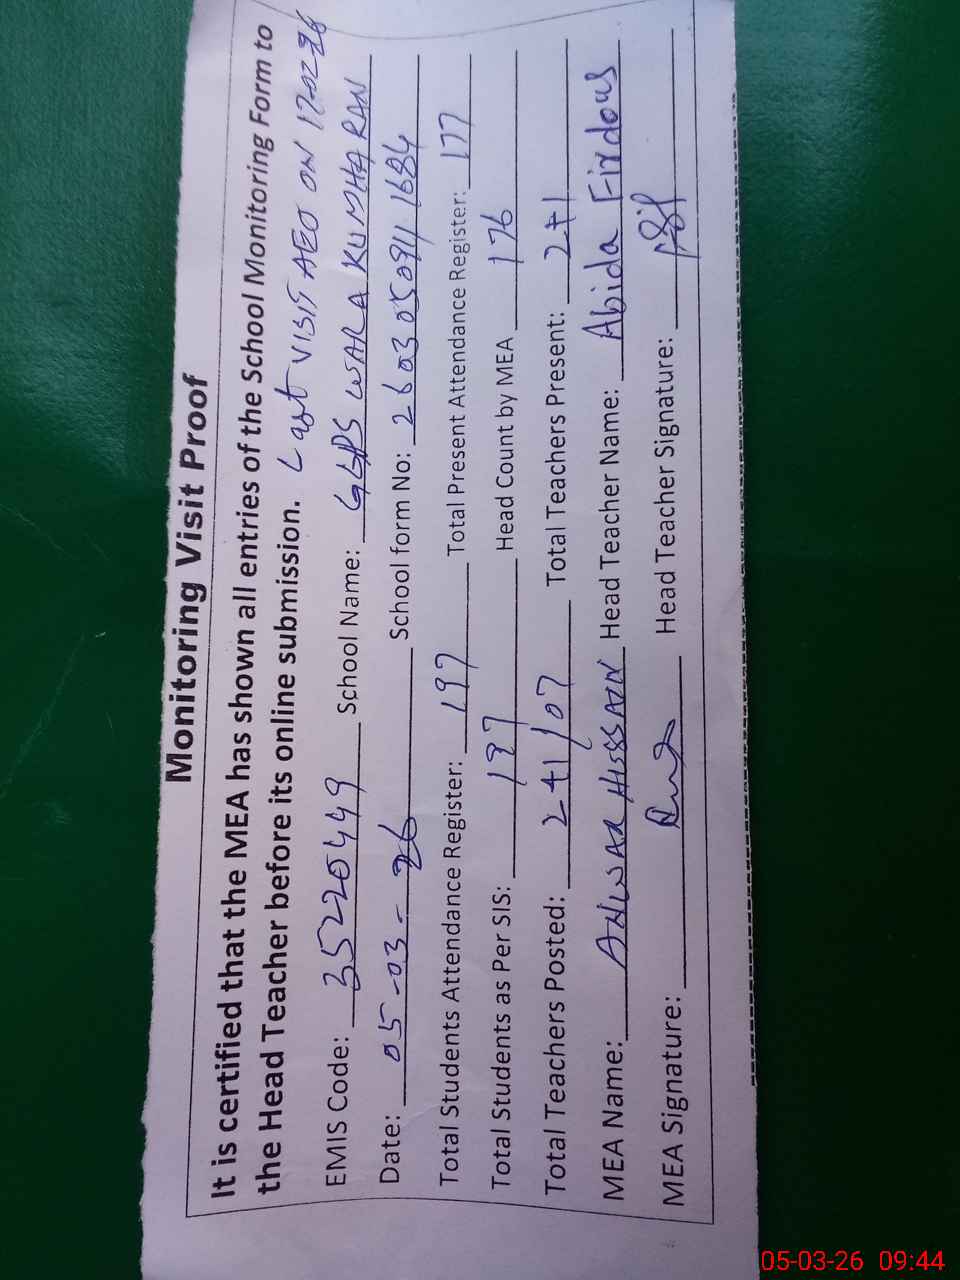 Monitoring Visit Proof
It is certified that the MEA has shown all entries of the School Monitoring Form to
the Head Teacher before its online submission. Last VISIT AEO ON 17-02-26
EMIS Code: 35220449 School Name: GGPS WARA KUMHARAN
Date: 05-03-26 School form No: 2603050911684
Total Students Attendance Register: 197 Total Present Attendance Register: 177
Total Students as Per SIS: 197 Head Count by MEA 176
Total Teachers Posted: 2+1/07 Total Teachers Present: 2+1
MEA Name: ANWAR HUSSAIN Head Teacher Name: Abida Firdous
MEA Signature: Head Teacher Signature:
05-03-26 09:44